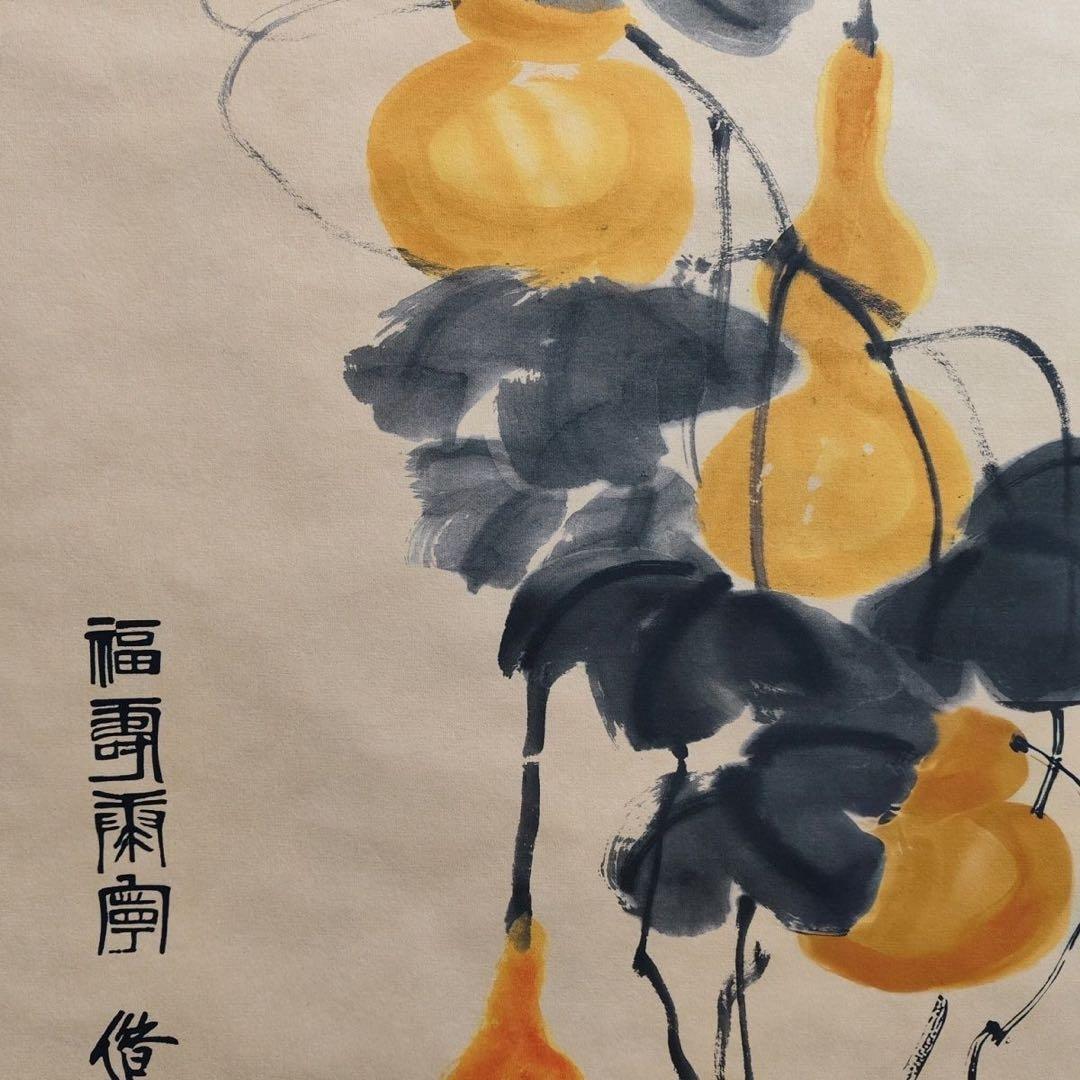 福壽康寧
借